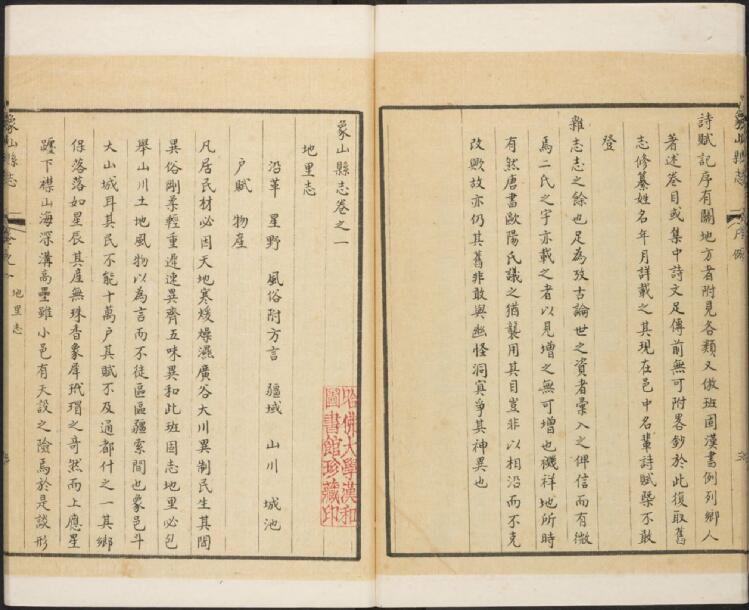 詩賦記序有關地方者附見各類又倣班固漢書例列鄉人
著述卷目或集中詩文足傳前無可附畧鈔於此復取舊
志修纂姓名年月詳載之其現在邑中名輩詩賦槩不敢
登
雜志志之餘也足為攷古論世之資者彙入之俾信而有徵
焉二氏之字亦載之者以見增之無可增也禨祥地所時
有然唐書歐陽氏議之猶襲用其目豈非以相沿而不克
改歟故亦仍其舊非敢與幽怪洞冥爭其神異也
象山縣志卷之一
地里志
沿革 星野 風俗附方言 疆域 山川 城池
戶賦 物產
凡居民材必因天地寒煖燥濕廣谷大川異制民生其間
異俗剛柔輕重遲速異齊五味異和此班固志地里必包
舉山川土地風物以為言而不徒區區疆索間也象邑斗
大山城耳其民不能十萬戶其賦不及通都什之一其鄉
保落落如星辰其產無珠香象犀玳瑁之奇然而上應星
躔下襟山海深溝高壘雖小邑有天設之險焉於是談形
哈佛大學漢和
圖書館珍藏印
象山縣志
卷之一
地里志